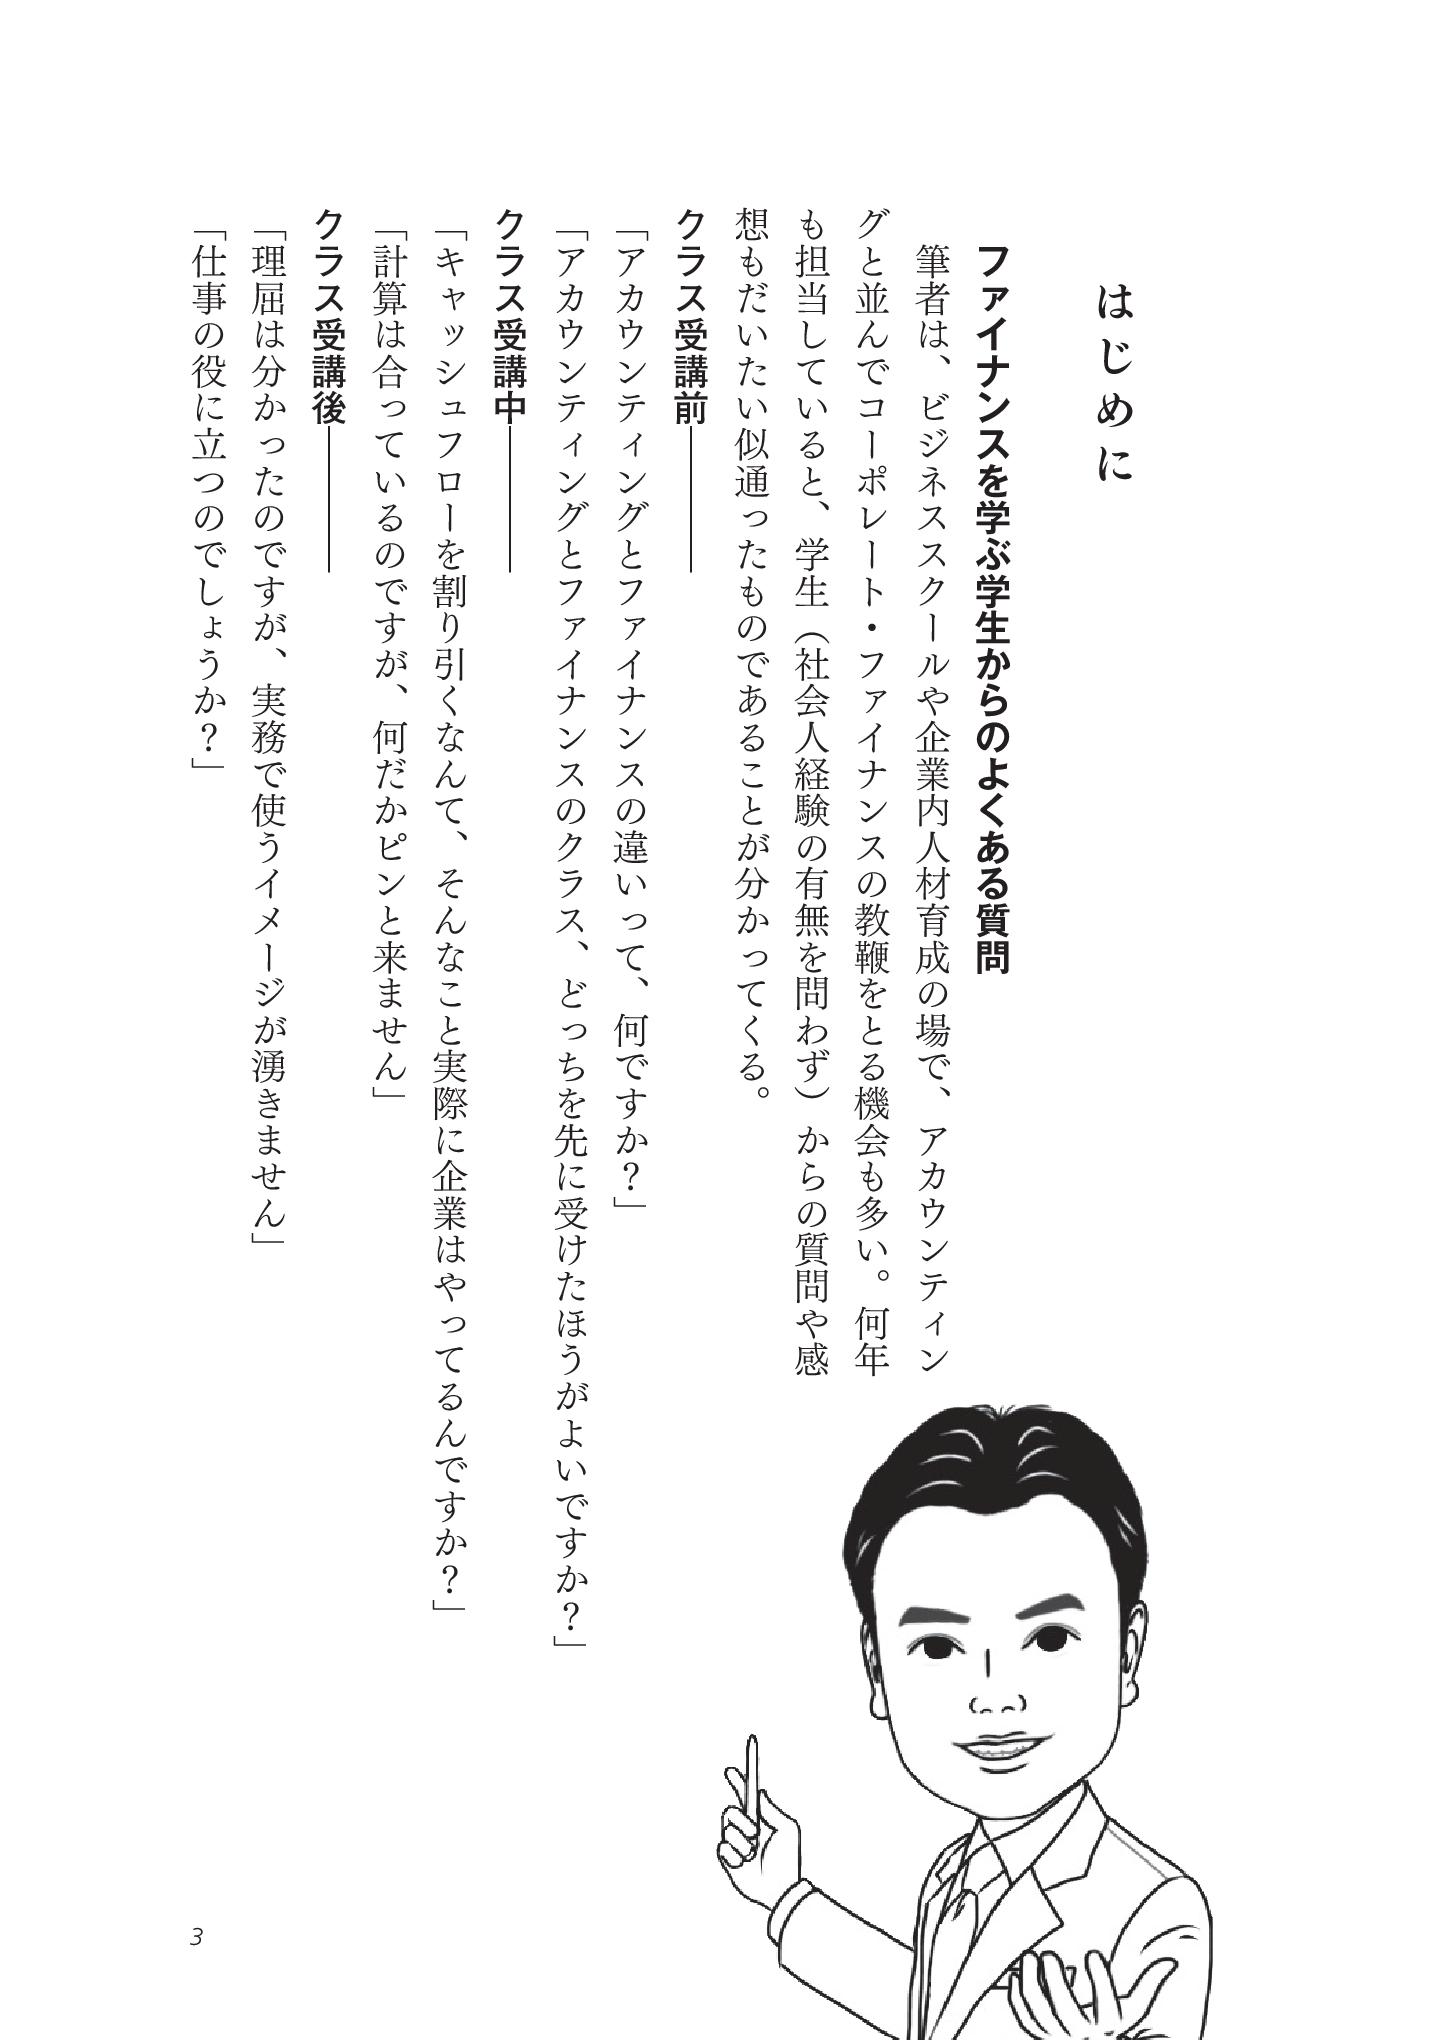 はじめに
ファイナンスを学ぶ学生からのよくある質問
筆者は、ビジネススクールや企業内人材育成の場で、アカウンティン
グと並んでコーポレート・ファイナンスの教鞭をとる機会も多い。何年
も担当していると、学生（社会人経験の有無を問わず）からの質問や感
想もだいたい似通ったものであることが分かってくる。
クラス受講前――――
「アカウンティングとファイナンスの違いって、何ですか？」
「アカウンティングとファイナンスのクラス、どっちを先に受けたほうがよいですか？」
クラス受講中――――
「キャッシュフローを割り引くなんて、そんなこと実際に企業はやってるんですか？」
「計算は合っているのですが、何だかピンと来ません」
クラス受講後――――
「理屈は分かったのですが、実務で使うイメージが湧きません」
「仕事の役に立つのでしょうか？」
3